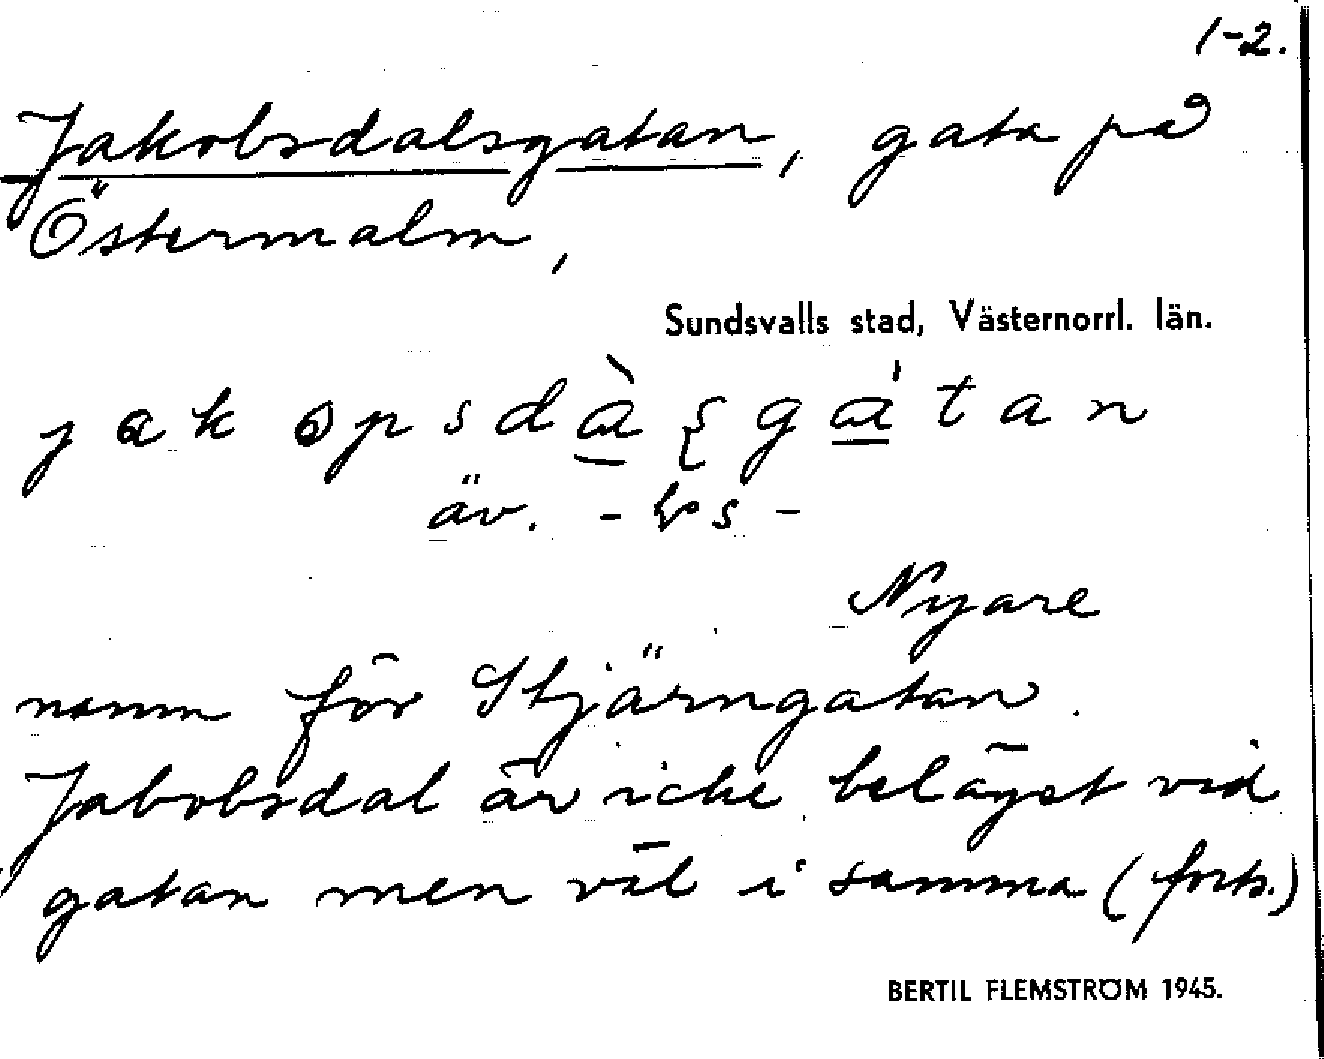 1-2.
Jakobsdalsgatan, gata på
Östermalm,
Sundsvalls stad, Västernorrl. län.
äv. - bs -
Nyare
namn för Stjärngatan.
Jakobsdal är icke beläget vid
gatan men väl i samma (forts.)
BERTIL FLEMSTRÖM 1945.